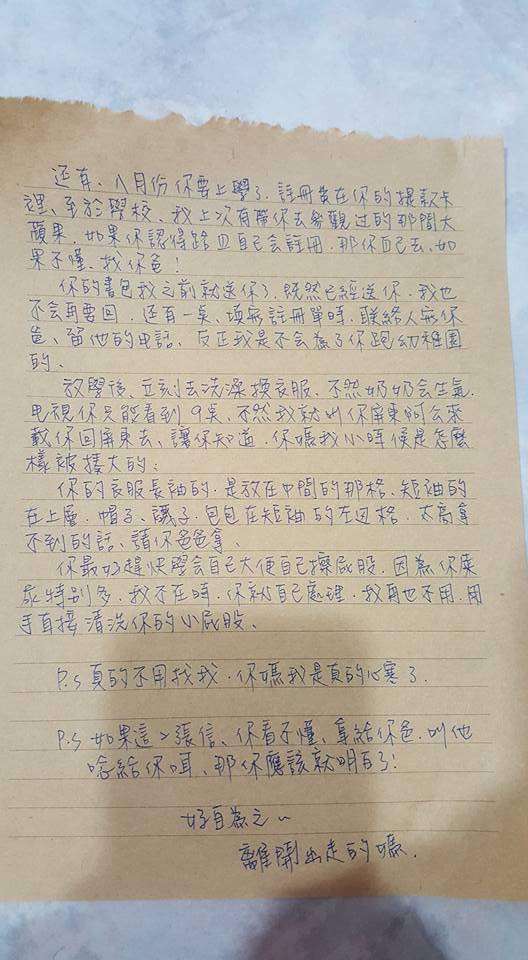 还有、八月份你要上學了、註冊費在你的提款卡
裡、至於學校、我上次有帶你去參觀过的那間大
蘋果、如果你認得路且自己会註冊、那你自己去、如
果不懂、找你爸！
你的書包我之前就送你了、既然已經送你、我也
不会再要回、还有一奌、填寫註冊單時、联絡人寫你
爸、留他的电話、反正我是不会為了你跑幼稚園
的、
放學後、立刻去洗澡換衣服、不然奶奶会生氣、
电視你只能看到9奌、不然我就叫你屏東阿公來
載你回屏東去、讓你知道、你媽我小時候是怎麼
樣被摟大的；
你的衣服長袖的、是放在中間的那格、短袖的
在上層、帽子、襪子、包包在短袖的左边格、太高拿
不到的話、請你爸爸拿、
你最好趕快學会自己大便自己擦屁股、因為你
特別多、我不在時、你就自己處理、我再也不用、用
手直接清洗你的小屁股、
P.S 真的不用找我、你媽我是真的心寒了、
P.S 如果這2張信、你看不懂、拿給你爸、叫他
唸給你听、那你應該就明白了！
好自為之～
離開出走的媽、